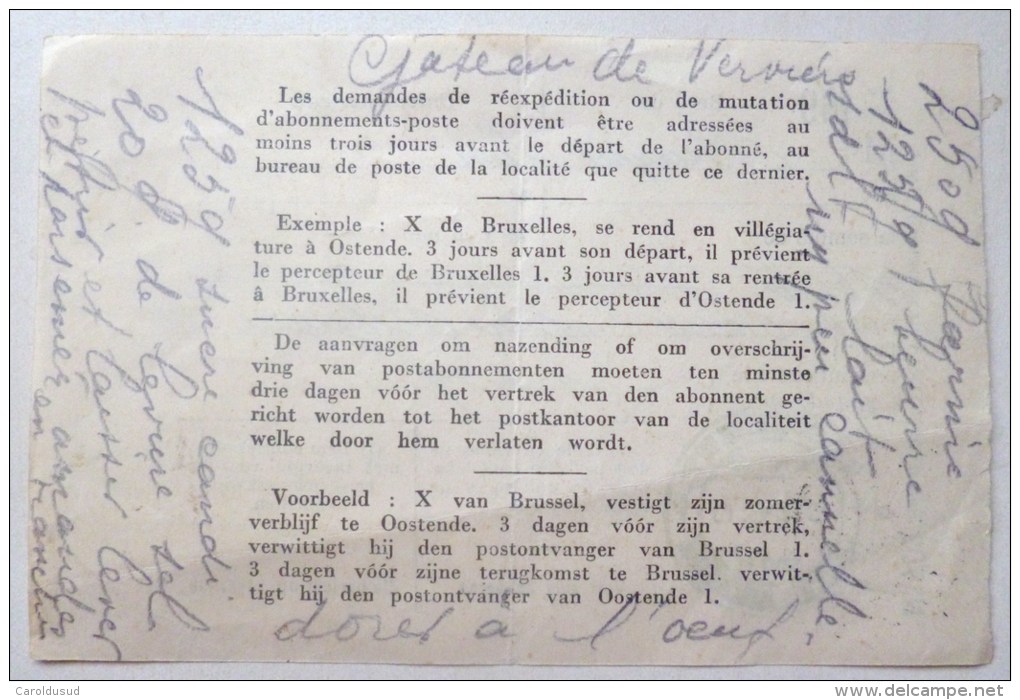 Gateau de Verviers
250g Farine
125g beurre
1 d L lait
un peu cannelle
125g sucre candi
20 g de levure sel
pétrir et laisser lever
et parsemer amandes
en tranches
dorer à l'oeuf
Les demandes de réexpédition ou de mutation
d'abonnements-poste doivent être adressées au
moins trois jours avant le départ de l'abonné, au
bureau de poste de la localité que quitte ce dernier.
Exemple : X de Bruxelles, se rend en villégia-
ture à Ostende. 3 jours avant son départ, il prévient
le percepteur de Bruxelles 1. 3 jours avant sa rentrée
à Bruxelles, il prévient le percepteur d'Ostende 1.
De aanvragen om nazending of om overschrij-
ving van postabonnementen moeten ten minste
drie dagen vóór het vertrek van den abonnent ge-
richt worden tot het postkantoor van de localiteit
welke door hem verlaten wordt.
Voorbeeld : X van Brussel, vestigt zijn zomer-
verblijf te Oostende. 3 dagen vóór zijn vertrek,
verwittigt hij den postontvanger van Brussel 1.
3 dagen vóór zijne terugkomst te Brussel. verwit-
tigt hij den postontvanger van Oostende 1.
Caroldusud
http://www.delcampe.net